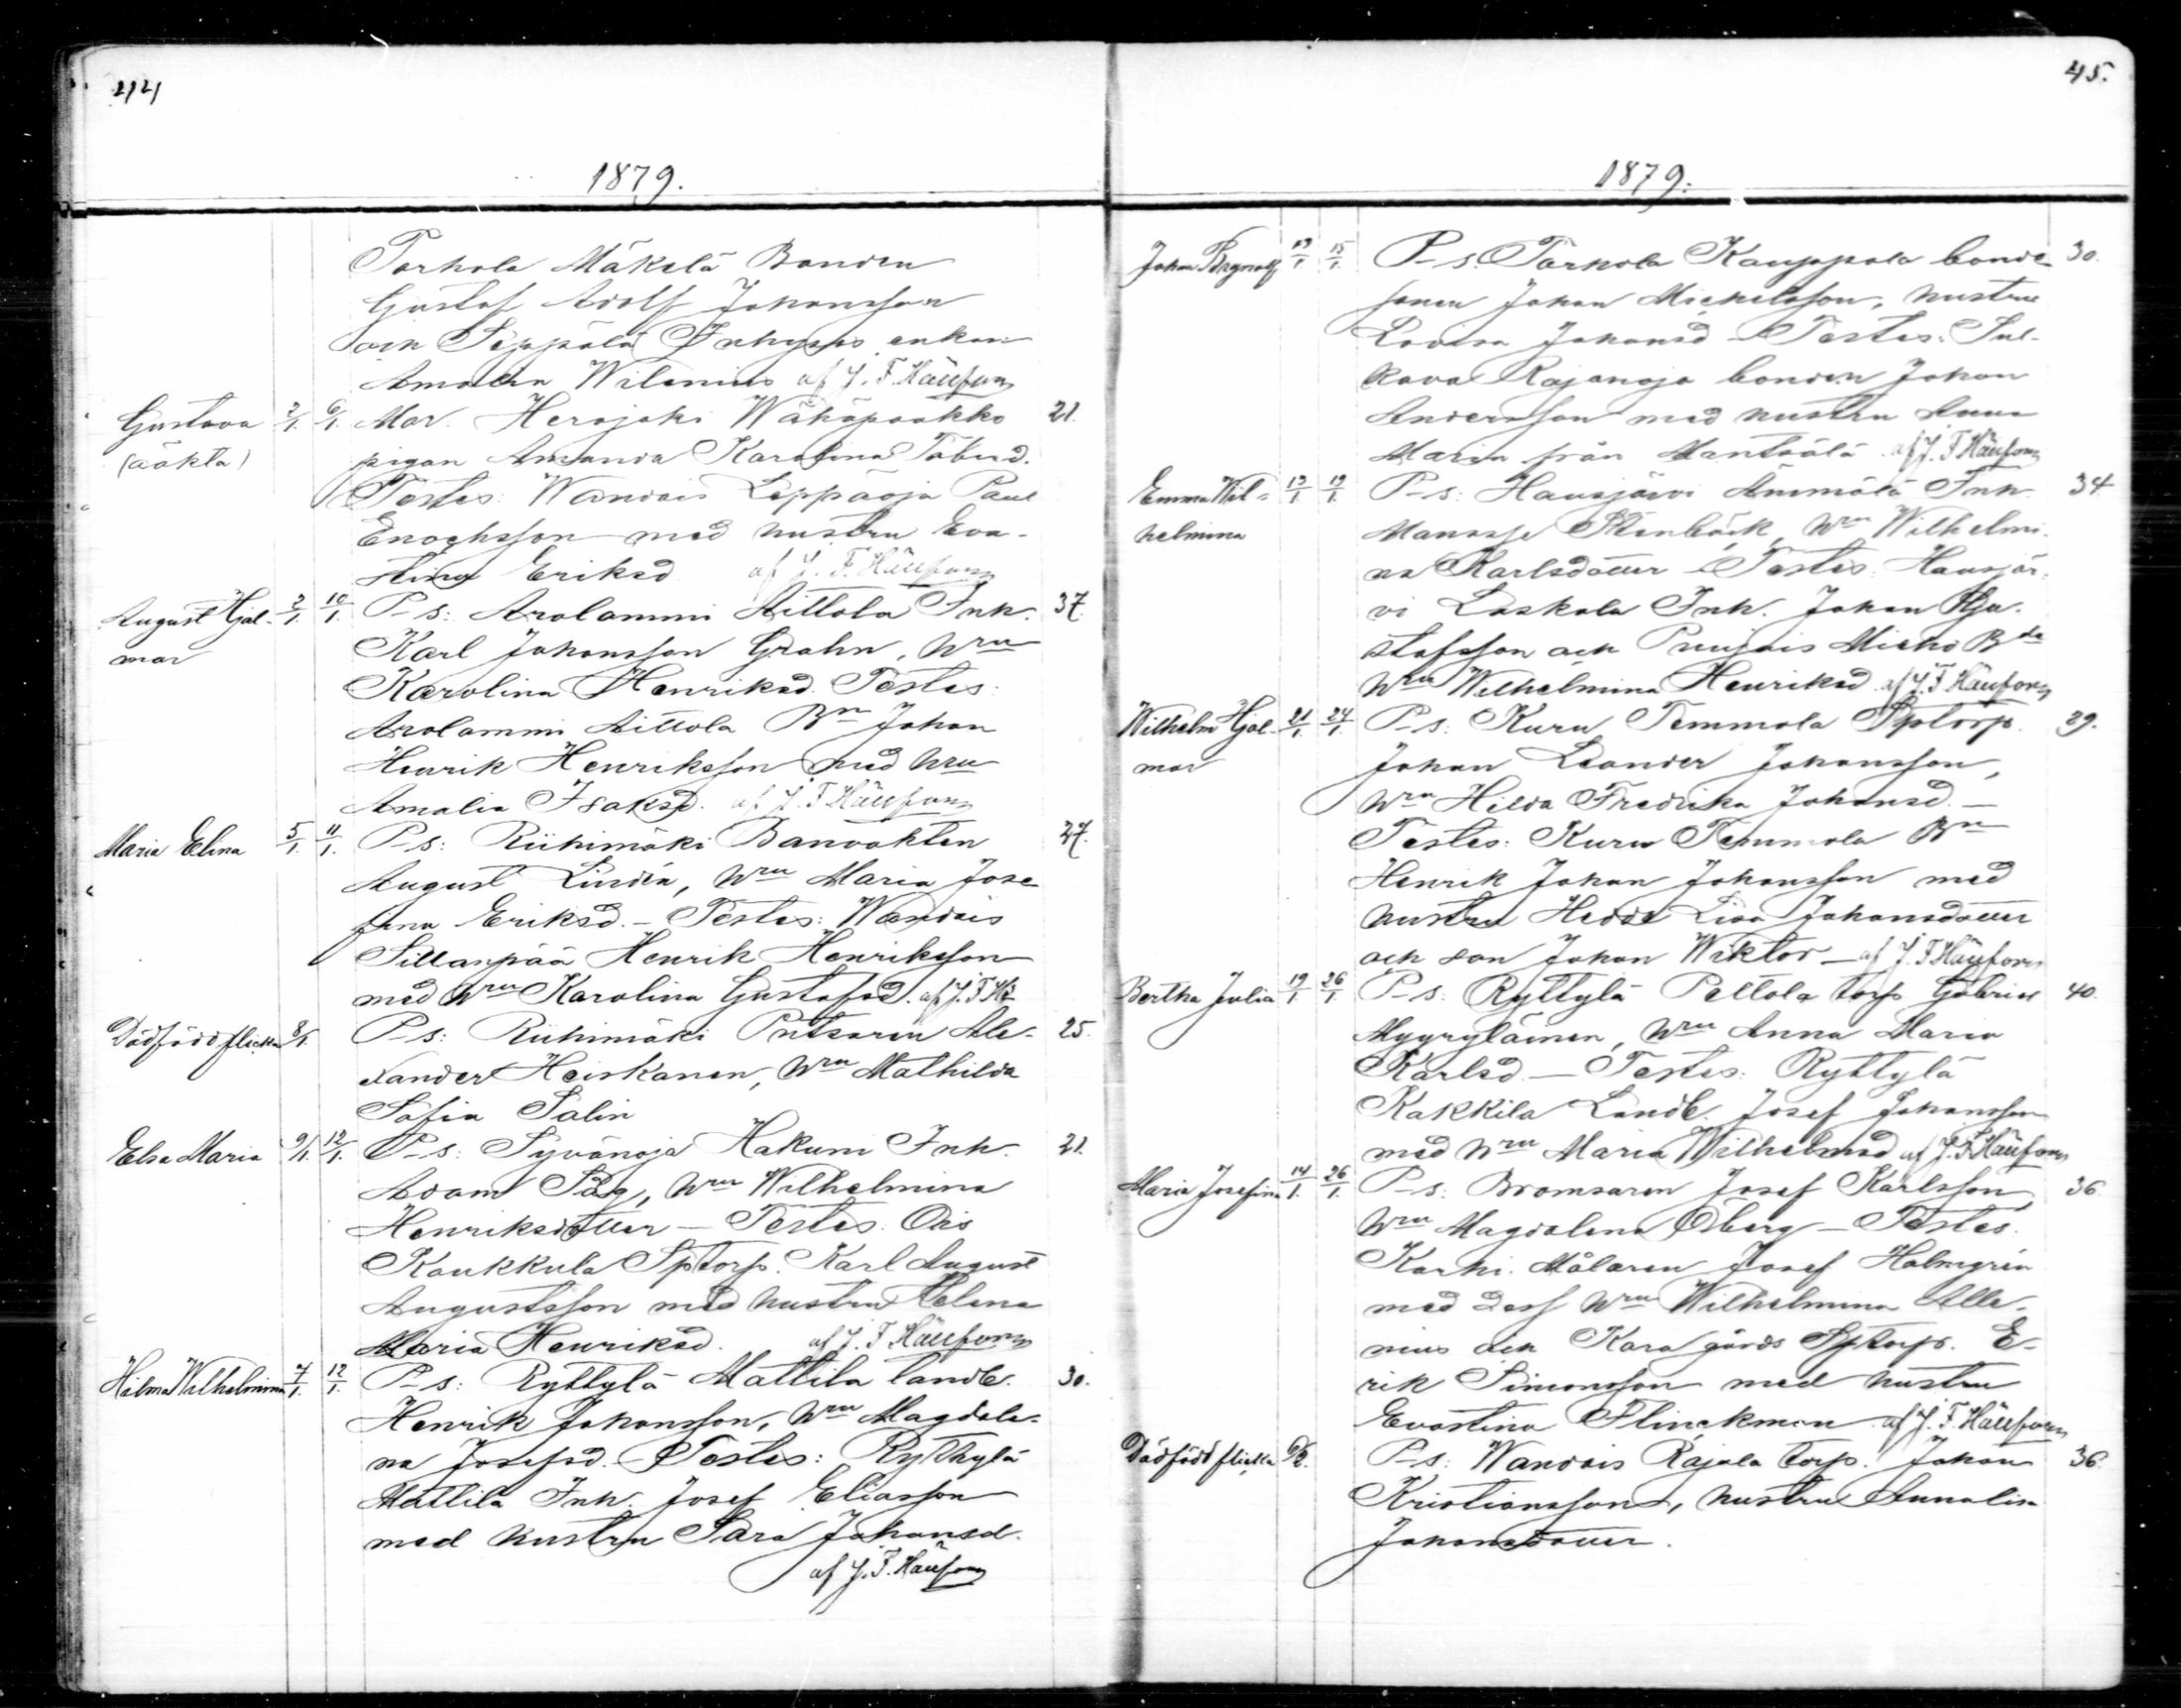 44
1879.
Torhola Mäkelä Bonden
Gustaf Adolf Johansson
och Seppälä Inhyses enkan
Amalia Wilenius af J. F. Häufors
Gustava 2/1. 6/1. Mar. Herajoki Wähäpaakko 21.
(oäkta) pigan Amanda Karolina Tobiasd.
Testes: Wandais Leppäoja Paul
Enochsson med hustru Eva-
stina Eriksd af J. F. Häufors
August Hjal- 2/1. 10/1. P-s: Arolammi Aittola Inh. 37.
mar Karl Johansson Grahn, Hru
Karolina Henriksd. Testes:
Arolammi Aittola Bn Johan
Henrik Henriksson med Hru
Amalia Isaksd. af J. F. Häufors
Maria Elina 5/1. 11/1. P-s: Riihimäki Banvakten 27.
August Lindén, Hru Maria Jose-
fina Eriksd. - Testes: Wandais
Sillanpää Henrik Henriksson
med Hru Karolina Gustafsd. af J. F. Hä
Dödfödd flicka 8/1. P-s: Riihimäki Putsaren Ale- 25.
xander Heiskanen, Hru Mathilda
Sofia Salin
Elsa Maria 9/1. 12/1. P-s: Syvänoja Hakuni Inh. 21.
Adam Påg, Hru Wilhelmina
Henriksdotter - Testes: Ois
Kaukkula Sptorp. Karl August
Augustsson med hustru Helena
Maria Henriksd. af J. F. Häufors
Hilma Wilhelmina 7/1. 12/1. P-s: Ryttylä Mattila landb. 30.
Henrik Johansson, Hru Magdale-
na Josefsd. Testes: Ryttylä
Mattila Inh. Josef Eliasson
med hustru Sara Johansd.
af J. F. Häufors
45.
1879.
Johan Brynolf 13/1 15/1. P-s. Torhola Kauppala bonde- 30.
sonen Johan Michelsson, hustru
Lovisa Johansd - Testes: Sul-
kava Rajanoja bonden Johan
Andersson med hustru Anna
Maria från Mäntsälä. af J. F. Häufors
Emma Wil- 13/1 19/1 P-s: Hausjärvi Ämmälä Inh. 34
helmina Manasse Stenbäck, Hru Wilhelmi-
na Karlsdotter - Testes: Hausjär-
vi Laskala Inh. Johan Gu-
stafsson och Puujais Micko Bde
Hru Wilhelmina Henriksd af J. F. Häufors
Wilhelm Hjal- 21/1 24/1. P-s. Kuru Temmola Sptorp. 29.
mar Johan Leander Johansson,
Hru Hilda Fredrika Johansd. -
Testes: Kuru Temmola Bn
Henrik Johan Johansson med
hustru Hedda Lisa Johansdotter
och son Johan Wiktor - af J. F. Häufors
Bertha Julia 19/1 26/1 P-s: Ryttylä Peltola torp Gabriel 40.
Myyryläinen, Hru Anna Maria
Karlsd. - Testes: Ryttylä
Kakkila Landb. Josef Johansson
med Hru Maria Wilhelmsd af J. F. Häufors
Maria Josefina 14/1. 26/1. P-s: Bromsaren Josef Karlsson, 36.
Hru Magdalena Öberg - Testes:
Karhi. Målaren Josef Holmgrén
med dess Hru Wilhelmina Alle-
nius och Kara gårds Sptorp. E-
rik Simonsson med hustru
Evastina Flinckman af J. F. Häufors
Dödfödd flicka 6/2. P-s: Wandais Rajala torp. Johan 36.
Kristiansson, hustru Annalisa
Johansdotter.